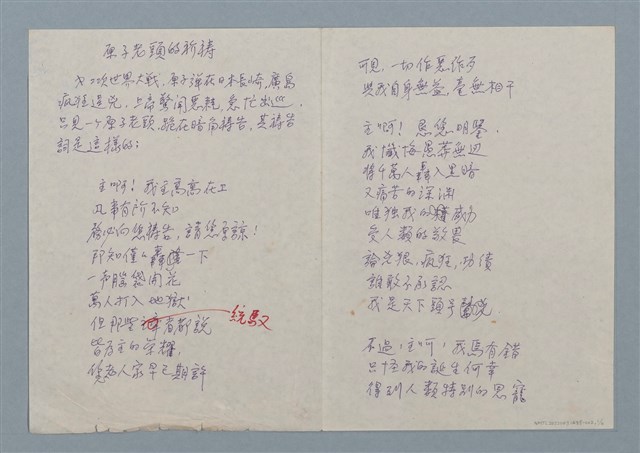 原子老頭的祈禱
二次世界大戰,原子彈在日本長崎,廣島
瘋狂過花,上帝驚聞惡耗,急忙出巡,
只見一ケ原子老頭,跪在暗角禱告,其禱告
詞是這樣的:
主啊!我主高高在上
凡事有所不知
務必向您禱告,請您原諒!
那知僅僅轟隆一下
一布腦袋開花
萬人打入地獄!
但那些 者都說
統馭
皆為主的榮耀,
您為人家早已期許
可見,一切作惡作歹
與我自身無益,毫無相干
主啊!恩您明鑒,
我懺悔愚莽無边
將千萬人轟入黑暗
又痛苦的深渊
唯独我的 威力
受人類的敬畏
論兇狠,瘋狂,功績
誰敢不承認
我是天下頭号
不過,主啊,我焉有錯
只怪我的誕生何幸
得到人類特别的恩寵